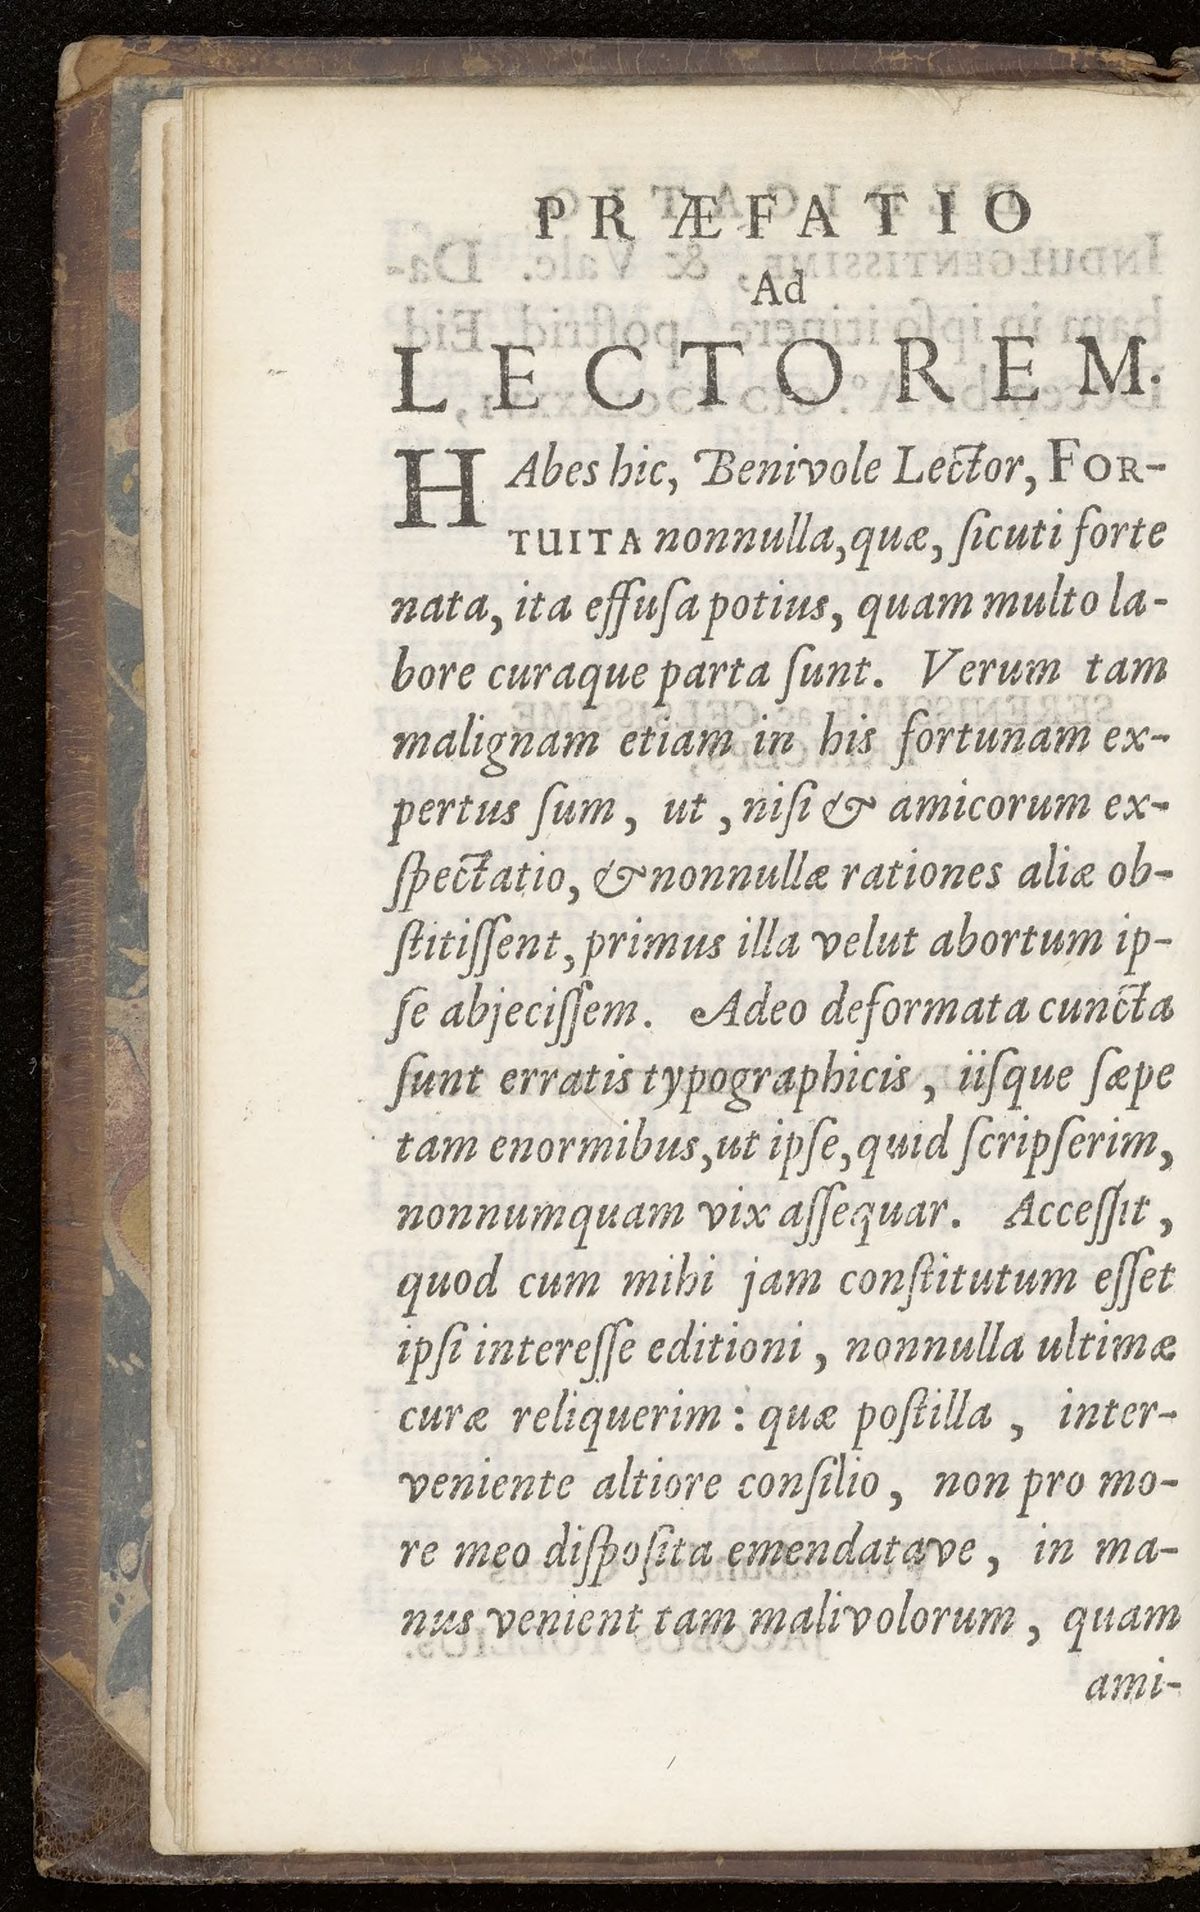 PRÆFATIO
Ad
LECTOREM.
HAbes hic, Benivole Lector, FOR-
TUITA nonnulla, quæ, ſicuti forte
nata, ita effuſa potius, quam multo la-
bore curaque parta ſunt. Verum tam
malignam etiam in his fortunam ex-
pertus ſum, ut, niſi & amicorum ex-
ſpectatio, & nonnullæ rationes aliæ ob-
ſtitiſſent, primus illa velut abortum ip-
ſe abjeciſſem. Adeo deformata cuncta
ſunt erratis typographicis, iiſque ſæpe
tam enormibus, ut ipſe, quid ſcripſerim,
nonnumquam vix aſſequar. Acceſſit,
quod cum mihi jam conſtitutum eſſet
ipſi intereſſe editioni, nonnulla ultimæ
curæ reliquerim: quæ poſtilla, inter-
veniente altiore conſilio, non pro mo-
re meo diſpoſita emendatave, in ma-
nus venient tam malivolorum, quam
ami-